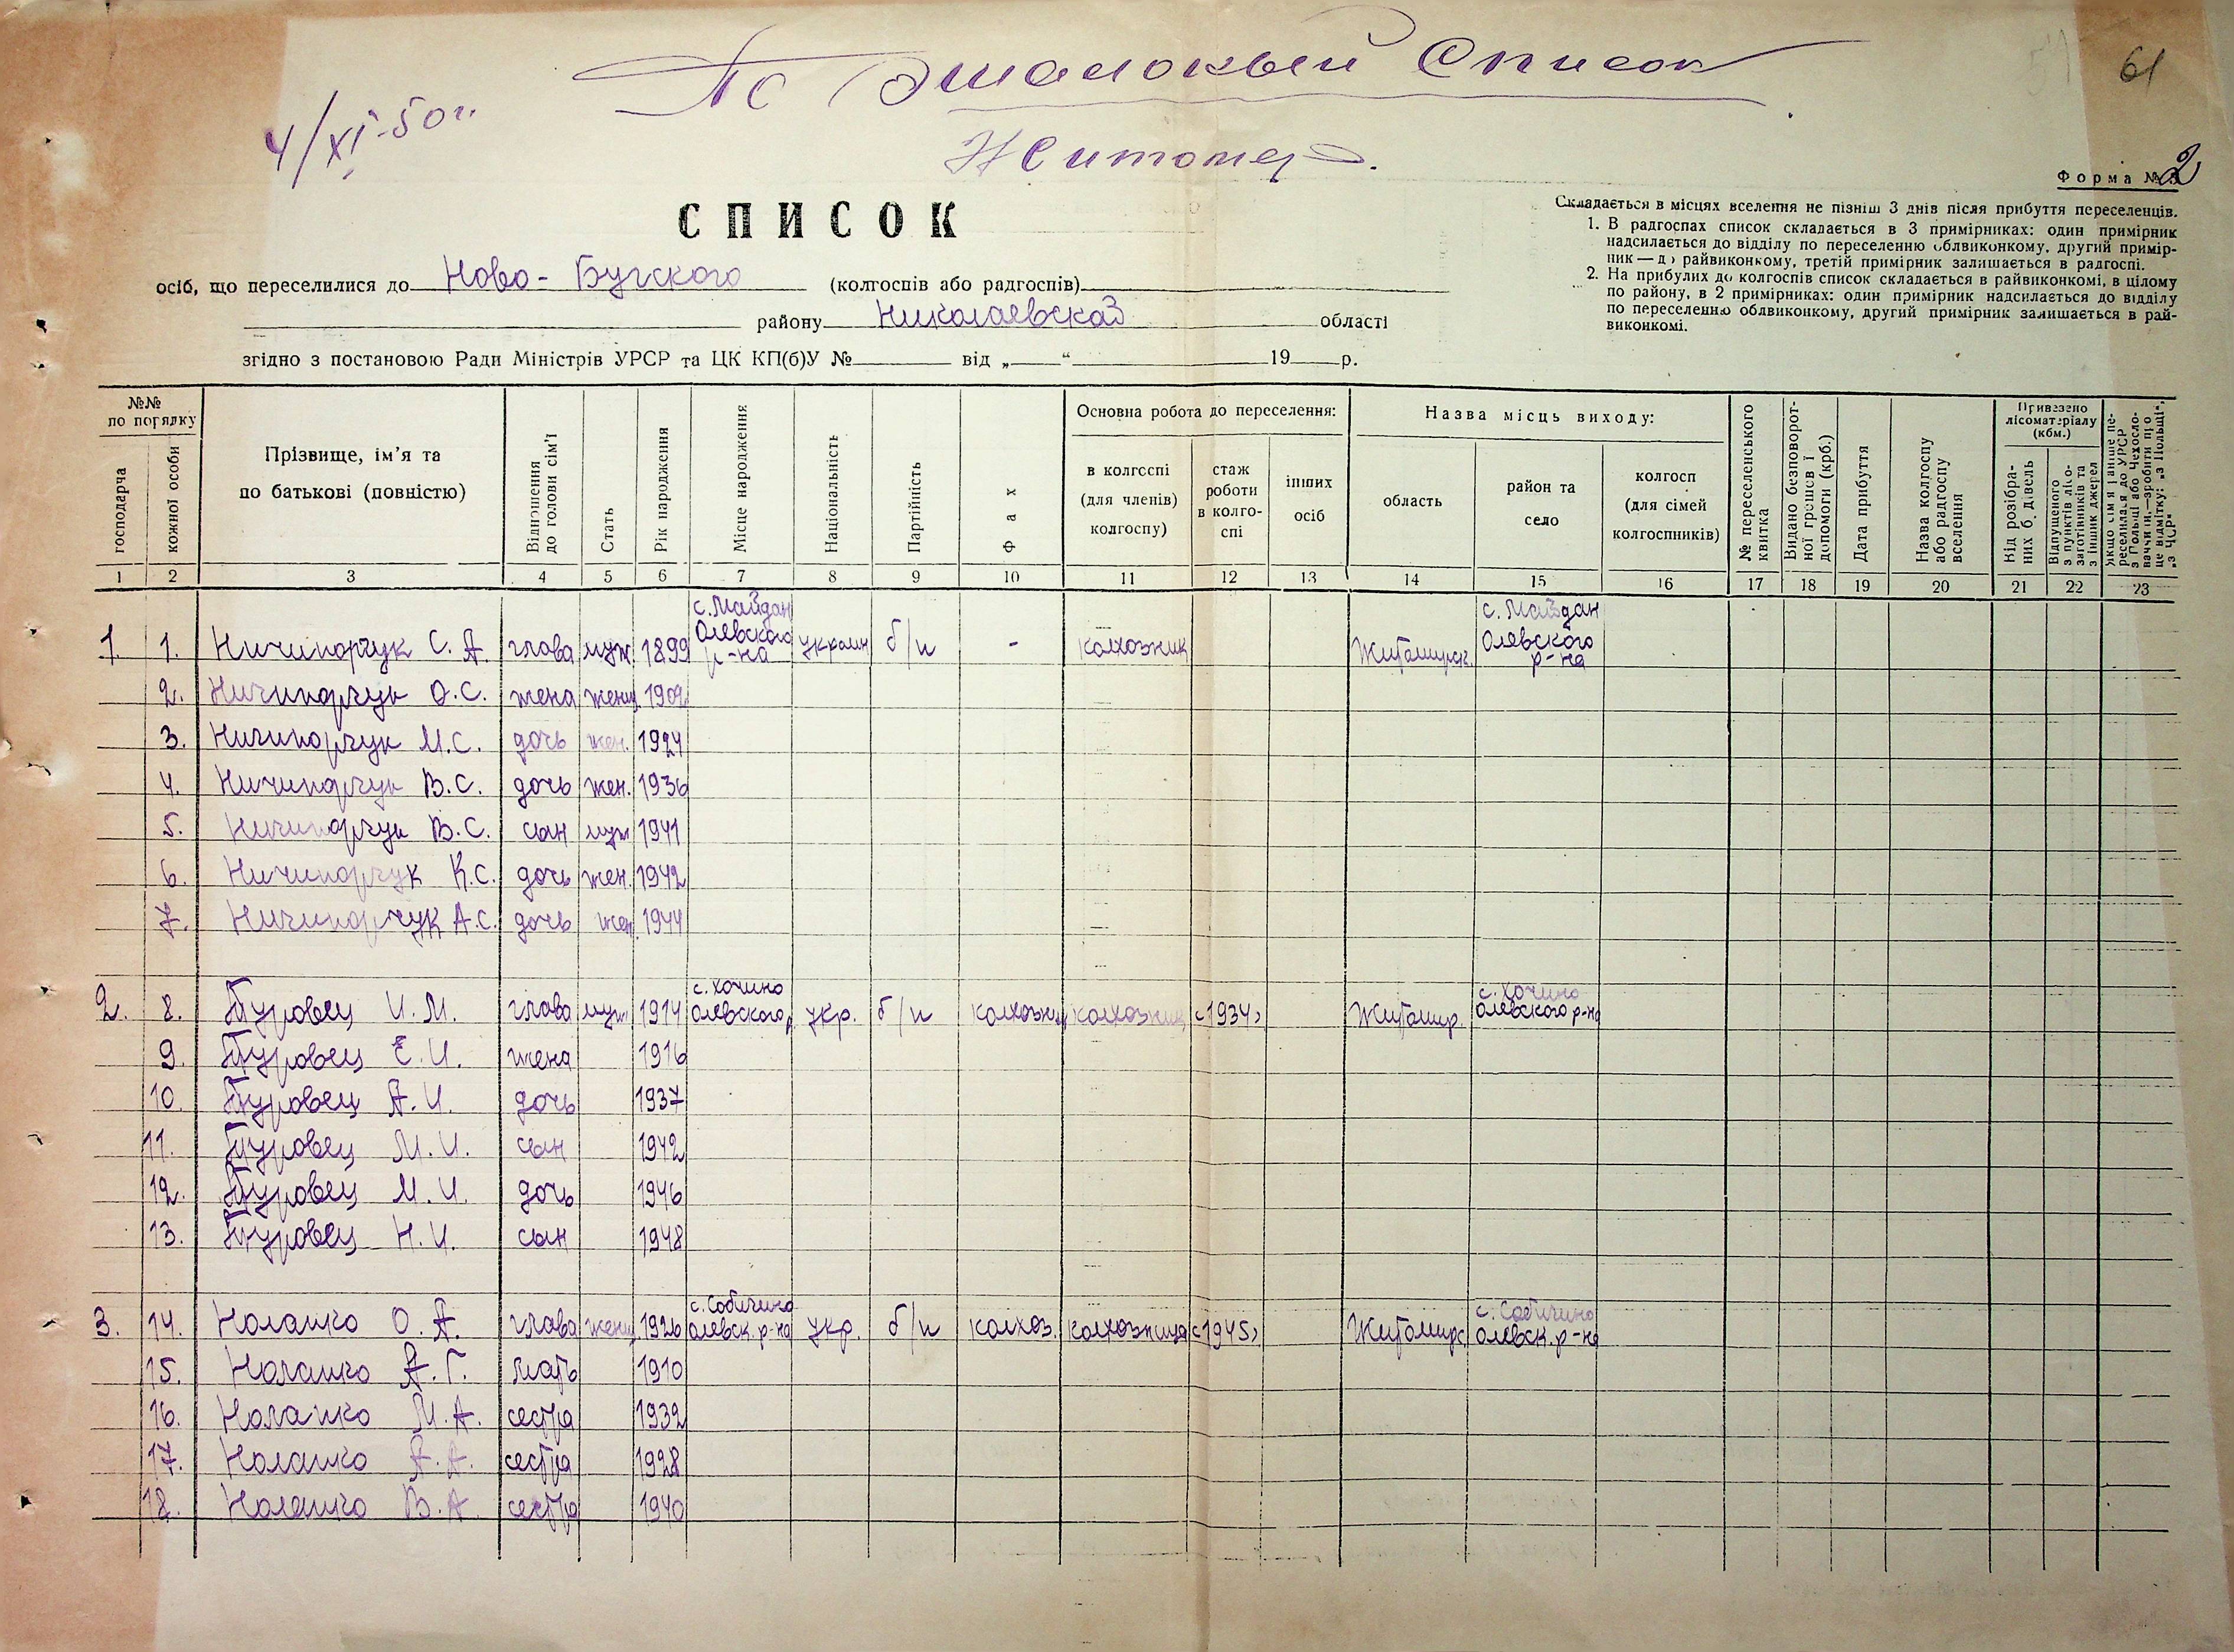 По Эшалоный Список
4/XI-50 г.
Житомер.
61
Форма № 2
СПИСОК
Складається в місцях вселення не пізніш 3 днів після прибуття переселенців.
1. В радгоспах список складається в 3 примірниках: один примірник
надсилається до відділу по переселенню облвиконкому, другий примір-
ник — до райвиконкому, третій примірник залишається в радгоспі.
2. На прибулих до колгоспів список складається в райвиконкомі, в цілому
по району, в 2 примірниках: один примірник надсилається до відділу
по переселенню облвиконкому, другий примірник залишається в рай-
виконкомі.
осіб, що переселилися до Ново-Бугского (колгоспів або радгоспів)
району Николаевская області
згідно з постановою Ради Міністрів УРСР та ЦК КП(б)У № від „ “ 19 р.
№№ по порядку
господарча
кожної особи
Прізвище, ім’я та
по батькові (повністю)
Відношення до голови сім’ї
Стать
Рік народження
Місце народження
Національність
Партійність
Фах
Основна робота до переселення:
в колгоспі (для членів) колгоспу)
стаж роботи в колго-спі
інших осіб
Назва місць виходу:
область
район та село
колгосп (для сімей колгоспників)
№ переселенського квитка
Видано безповорот-ної грошевї допомоги (крб.)
Дата прибуття
Назва колгоспу або радгоспу вселення
Привезено лісоматеріалу (кбм.)
Від розібра-них б. дівель
Відпущеного з пунктів лісо-заготівників та з інших джерел
Якщо сім’я раніше пе-реселилася до УРСР з Польщі або Чехосло-ваччини,—зробити про це відмітку: „з Польщі“, „з ЧСР“
1 2 3 4 5 6 7 8 9 10 11 12 13 14 15 16 17 18 19 20 21 22 23
1. 1. Ничипорчук С. А. глава муж. 1899 с. Майдан Олевского р-на украин б/п - колхозник Житомирск. с. Майдан Олевского р-на
2. Ничипорчук О.С. жена женщ. 1902
3. Ничипорчук М.С. дочь жен. 1924
4. Ничипорчук В.С. дочь жен. 1936
5. Ничипорчук В.С. сын муж 1941
6. Ничипорчук К.С. дочь жен. 1942
7. Ничипорчук А.С. дочь жен. 1944
2. 8. Туровец И.М. глава муж. 1914 с. Хочино Олевского р. укр. б/п колхозник колхозник с 1934 Житомир. с. Хочино Олевского р-на
9. Туровец Е.И. жена 1916
10. Туровец А.И. дочь 1937
11. Туровец М.И. сын 1942
12. Туровец М.И. дочь 1946
13. Туровец Н.И. сын 1948
3. 14. Ноланко О.А. глава женщ. 1926 с. Собичино Олевск. р-на укр. б/п колхоз. колхозница с 1945 Житомирс. с. Собичино Олевск. р-на
15. Ноланко А.Г. мать 1910
16. Ноланко М.А. сестра 1932
17. Ноланко А.А. сестра 1928
18. Ноланко В.А. сестра 1940